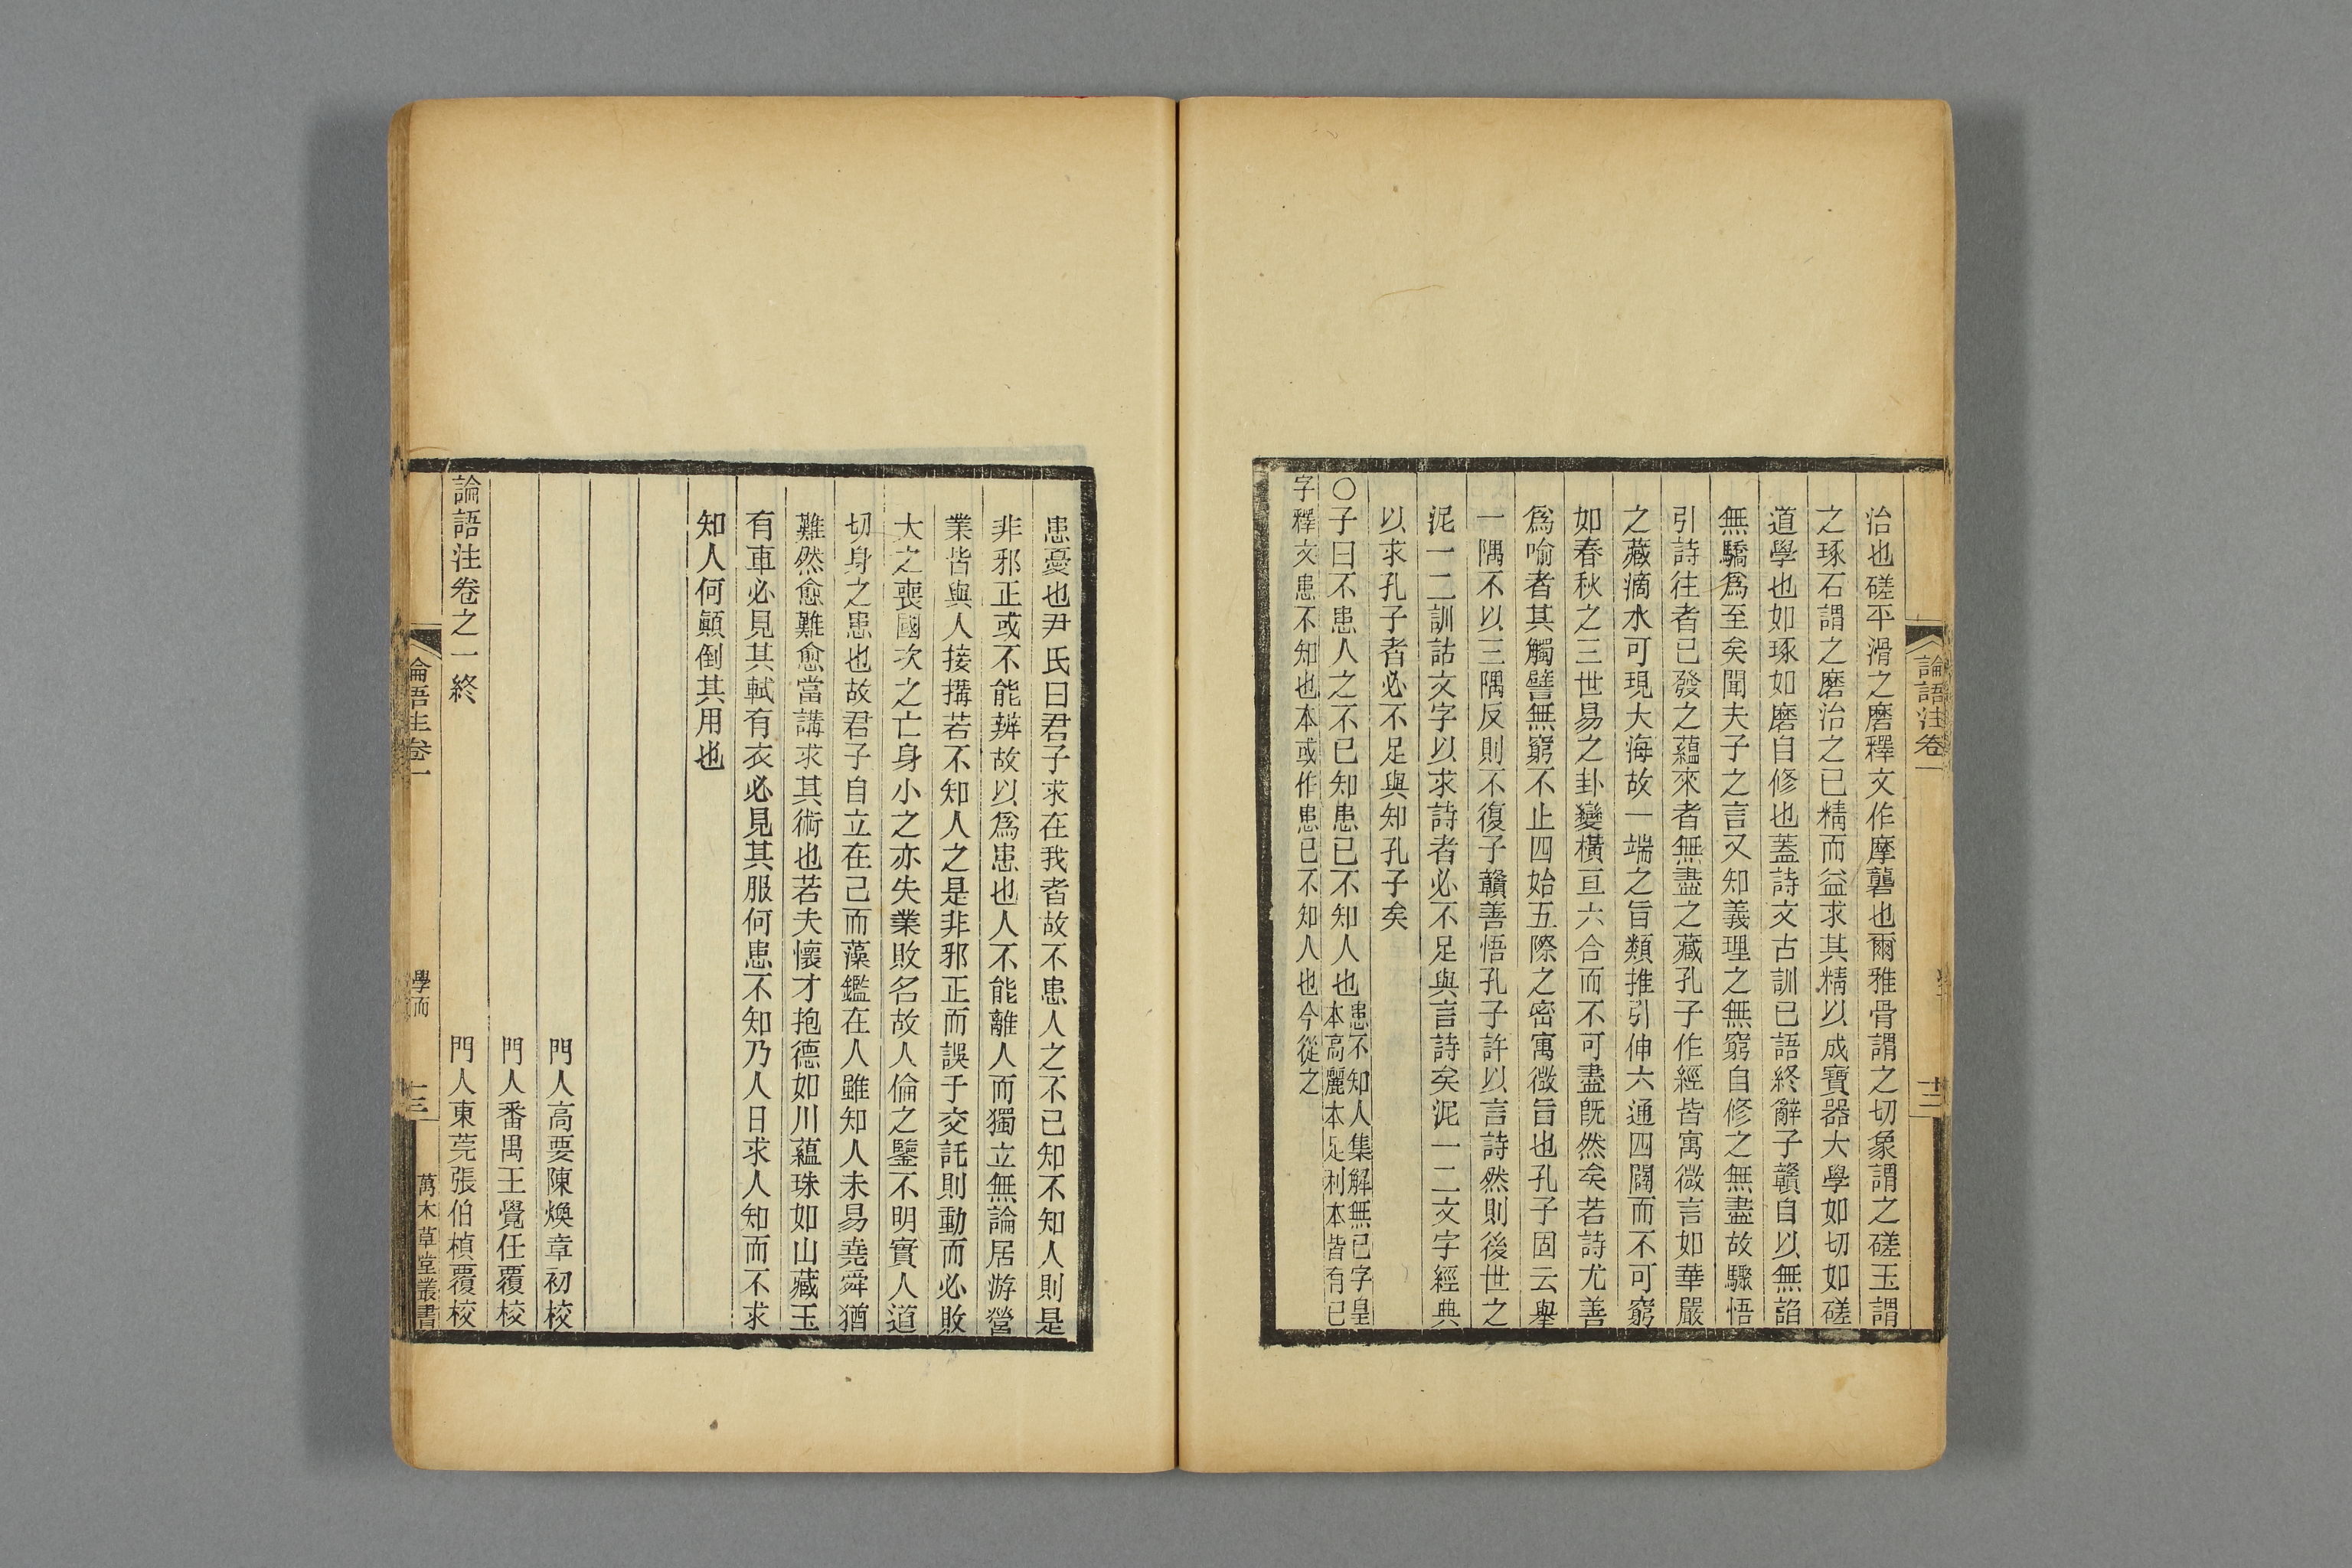 論語注卷一
十二
治也磋平滑之磨釋文作摩礱也爾雅骨謂之切象謂之磋玉謂
之琢石謂之磨治之已精而益求其精以成寶器大學如切如磋
道學也如琢如磨自修也蓋詩文古訓已語終辭子贛自以無諂
無驕爲至矣聞夫子之言又知義理之無窮自修之無盡故驟悟
引詩往者已發之蘊來者無盡之藏孔子作經皆寓微言如華嚴
之藏滴水可現大海故一端之旨類推引伸六通四闢而不可窮
如春秋之三世易之卦變橫亘六合而不可盡旣然矣若詩尤善
爲喻者其觸譬無窮不止四始五際之密寓微旨也孔子固云舉
一隅不以三隅反則不復子贛善悟孔子許以言詩然則後世之
泥一二訓詁文字以求詩者必不足與言詩矣泥一二文字經典
以求孔子者必不足與知孔子矣
〇子曰不患人之不己知患己不知人也
患不知人集解無己字皇
本高麗本足利本皆有己
字釋文患不知也本或作患己不知人也今從之
患憂也尹氏曰君子求在我者故不患人之不己知不知人則是
非邪正或不能辨故以爲患也人不能離人而獨立無論居游營
業皆與人接搆若不知人之是非邪正而誤于交託則動而必敗
大之喪國次之亡身小之亦失業敗名故人倫之鑒不明實人道
切身之患也故君子自立在己而藻鑑在人雖知人未易堯舜猶
難然愈難愈當講求其術也若夫懷才抱德如川蘊珠如山藏玉
有車必見其軾有衣必見其服何患不知乃人日求人知而不求
知人何顚倒其用也
門人高要陳煥章初校
門人番禺王覺任覆校
論語注卷之一終
門人東莞張伯楨覆校
論語注卷一
學而
十三
萬木草堂叢書